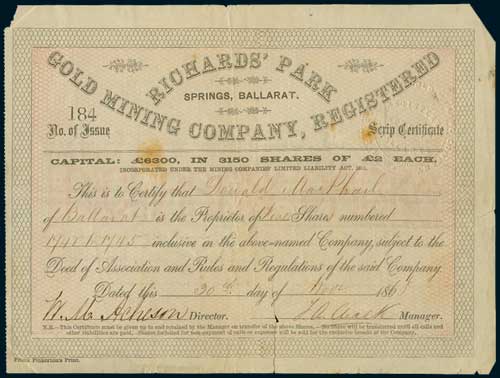 RICHARDS' PARK
GOLD MINING COMPANY, REGISTERED
SPRINGS, BALLARAT.
184
No. of Issue
Scrip Certificate
CAPITAL: £6300, IN 3150 SHARES OF £2 EACH,
INCORPORATED UNDER THE MINING COMPANIES' LIMITED LIABILITY ACT,
This is to Certify that Donald
of Ballarat is the Proprietor of Five Share numbered
1741 to 1745 inclusive in the above-named Company, subject to the
Deed of Association and Rules and Regulations of the said Company.
Dated this 20th day of Nov 186
W. M. Acheson Director. Manager.
N.B.—This Certificate must be given up to and retained by the Manager on transfer of the above Shares. No Share will be transferred until all calls and
other liabilities are paid. Shares forfeited for non-payment of calls or expenses will be sold for the exclusive benefit of the Company.
Frank Pinkerton's Print.